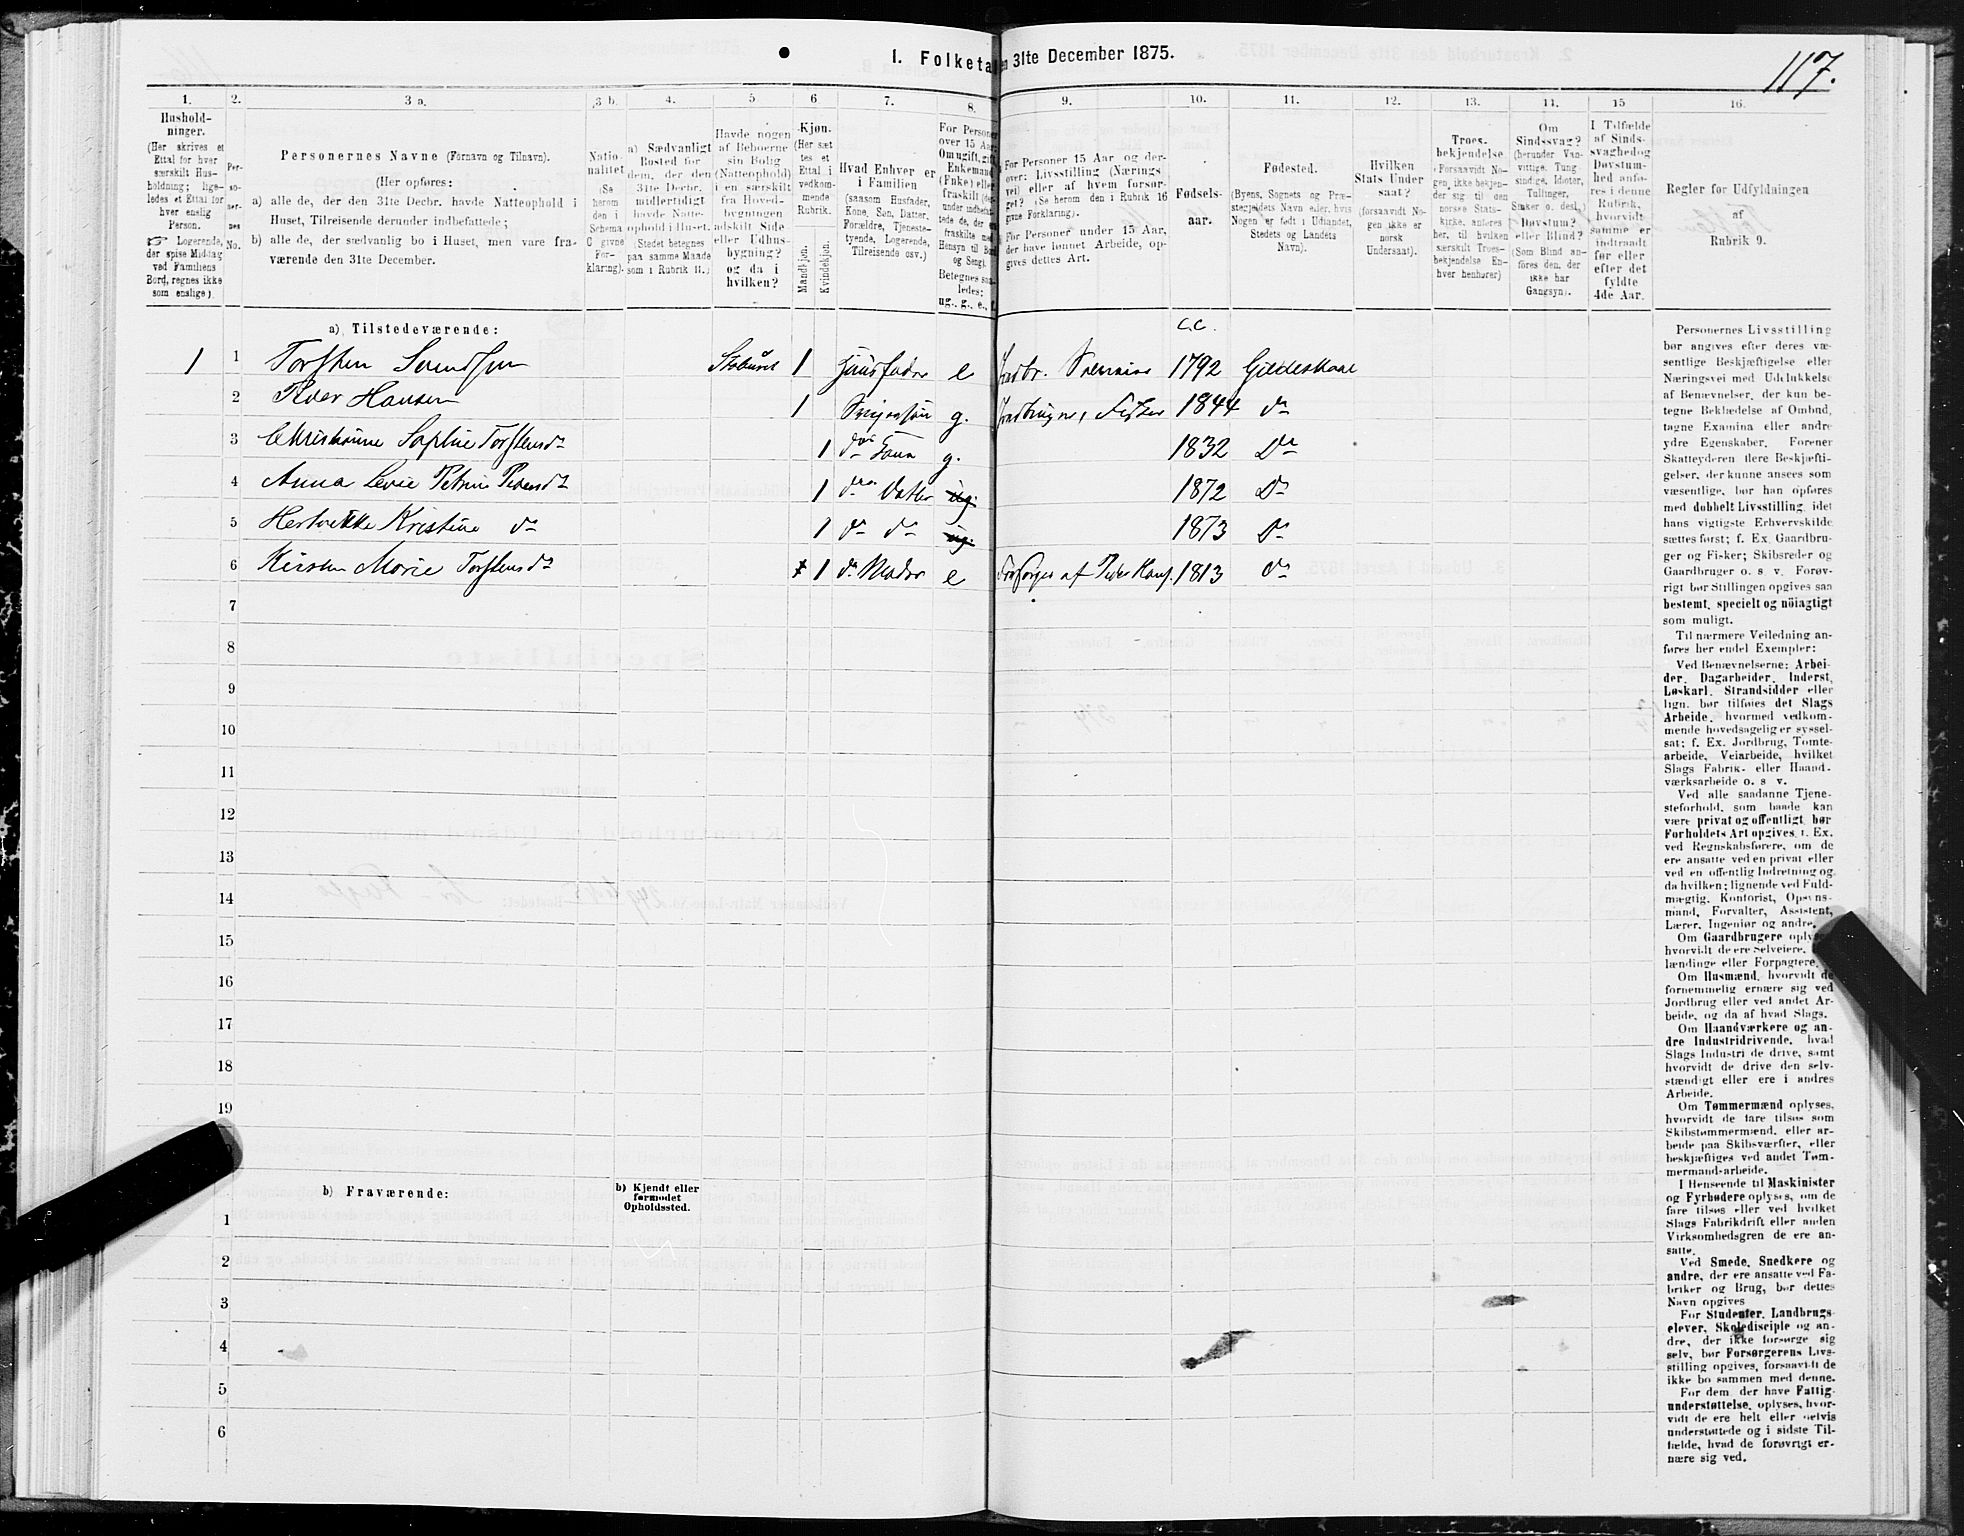 1. Folketa
en 31te December 1875.
117.
1.
2.
3 a.
3 b.
4.
5
6
7.
8.
9.
10.
11.
12.
13.
14.
15
16.
Hushold-
ninger.
(Her skrives et
Ettal for hver
særskilt Hus-
holdning; lige-
ledes et Ettal for
hver enslig
Person.
☞ Logerende,
der spise Middag
ved Familiens
Bord, regnes ikke
som enslige).
Per-
so-
ner-
nes
No.
Personernes Navne (Fornavn og Tilnavn).
(Her opføres:
a) alle de, der den 31te Decbr. havde Natteophold i
Huset, Tilreisende derunder indbefattede;
b) alle de, der sædvanlig bo i Huset, men vare fra-
værende den 31te December.
Natio-
nalitet
(Se
herom
den i
Schema
C givne
For-
klaring).
a) Sædvanligt
Bosted for
dem, der den
31te Decbr.
midlertidigt
havde Natte-
ophold i Huset.
(Stedet betegnes
paa samme Maade
som i Rubrik 11.)
Havde nogen
af Beboerne
sin Bolig
(Natteophold)
i en særskilt
fra Hoved-
bygningen
adskilt Side-
eller Udhus-
bygning?
og da i
hvilken?
Kjøn.
(Her sæt
tes et
Ettal i
vedkom-
mende
Rubrik.
Mandkjøn.
Kvindekjøn.
Hvad Enhver er
i Familien
(saasom Husfader,
Kone, Søn, Datter,
Forældre, Tjeneste-
tyende, Logerende,
Tilreisende osv.)
For Personer
over 15 Aar:
Om ugift, gift,
Enkemand
(Enke) eller
fraskilt
Betegnes saa-
ledes:
ug., g., e., f.
For Personer 15 Aar og der-
over: Livsstilling (Nærings
vei) eller af hvem forsør-
get? (Se herom den i Rubrik 16
givne Forklaring).
For Personer under 15 Aar,
der have lønnet Arbeide, op-
gives dettes Art.
Fødsels-
aar.
Fødested.
(Byens, Sognets og Præ-
stegjeldets Navn eller, hvis
Nogen er født i Udlandet,
Stedets og Landets
Navn).
Hvilken
Stats Under
saat?
(forsaavidt No-
gen ikke er
norsk
Undersaat).
Troes-
bekjendelse
(Forsaavidt No-
gen ikke bekjen-
der sig til den
norske Stats-
kirke, anføres
her, til hvilken
særskilt Troes-
bekjendelse En-
hver henhører)
Om
Sindssvag?
(herunder Van-
vittige, Tung-
sindige, Idioter,
Tullinger,
Sinker o. desl.)
Døvstum?
eller Blind?
(Som Blind an-
føres den, der
ikke har
Gangsyn).
I Tilfælde
af Sinds-
svaghed og
Døvstum-
hed anfø-
res i denne
Rubrik,
hvorvidt
samme er
indtraadt
før eller
efter det
fyldte
4de Aar.
Regler før Udfyldningen
af
Rubrik 9.
a) Tilstedeværende:
c.c.
1 1 Torsten Svendsen Stabuset 1 Huusfader e 1792 Gildeskaal
2 Peder Hansen 1 Svigersøn g. Jordbruger, Fisker 1844 do
3 Christianne Sophie Torstensdr 1 ds Kone g. 1832 Do
4 Anna Petrine Pedersdr 1 ds Datter ug. 1872 Do
5 Kristine do 1 do do ug. 1873 Do
6 Kirsten Marie Torstensdr 1 ds Moder e Forsørges af Peder Hans. 1813 do
7
8
9
10
11
12
13
14
15
16
17
18
19
b) Fraværende:
b) Kjendt eller
formodet
Opholdssted.
1
2
3
4
5
6
Personernes Livsstilling
bør angives efter deres væ-
sentlige Beskjæftigelse eller
Næringsvei med Udelukkelse
af Benævnelser, der kun be-
tegne Beklædelse af Ombud,
tagne Examina eller andre
ydre Egenskaber. Forener
Skatteyderen flere Beskjæfti-
gelser, der kunne ansees som
væsentlige, bør han opføres
med dobbelt Livsstilling, idet
hans vigtigste Erhvervskilde
sættes først; f. Ex. Gaardbru-
ger og Fisker; Skibsreder og
Gaardbruger o. s. v. Forøv-
rigt bør Stillingen opgives saa
bestemt, specielt og nöiagtigt
som muligt.
Til nærmere Veiledning an-
føres her endel Exempler:
Ved Benævnelserne: Arbei-
der, Dagarbeider, Inderst,
Løskarl, Strandsidder eller
lign. bør tilføies det Slags
Arbeide, hvormed vedkom-
mende hovedsagelig er syssel-
sat; f. Ex. Jordbrug, Tomte-
arbeide, Veiarbeide, hvilket
Slags Fabrik- eller Haand-
værksarbeide o. s v.
Ved alle saadanne Tjene-
steforhold, som baade kan
være privat og offentligt, bør
Forholdets Art opgives, f. Ex.
ved Regnskabsførere, om de
ere ansatte ved en privat eller
ved en offentlig Indretning og
da hvilken; lignende ved Fuld-
mægtig, Kontorist, Opsyns-
mand, Forvalter, Assistent,
Lærer, Ingeniør og andre.
Om Gaardbrugere oplyses,
hvorvidt de ere Selveiere,
lændinge eller Forpagtere.
Om Husmænd, hvorvidt de
fornemmelig ernære sig ved
Jordbrug eller ved andet Ar-
beide, og da af hvad Slags.
Om Haandværkere og an-
dre Industridrivende, hvad
Slags Industri de drive, samt
hvorvidt de drive den selv-
stændigt eller ere i andres
Arbeide.
Om Tømmermænd oplyses,
hvorvidt de fare tilsøs som
Skibstømmermænd, eller ar-
beide paa Skibsværfter, eller
beskjæftiges ved andet Tøm-
mermandsarbeide.
I Henseende til Maskinister
og Fyrbødere oplyses, om de
fare tilsøs eller ved hvilket
Slags Fabrikdrift eller anden
Virksomhedsgren de ere an-
satte.
Ved Smede, Snedkere og
andre, der ere ansatte ved Fa-
briker og Brug, bør dettes
Navn opgives
For Studenter, Landbrugs-
elever, Skoledisciple og an-
dre, der ikke forsørge sig
selv, bør Forsørgerens Livs-
stilling opgives, forsaavidt de
ikke bo sammen med denne.
For dem, der have Fattig-
understøttelse, oplyses, hvor-
vidt de ere helt eller delvis
understøttede og i sidste Til-
fælde, hvad de forøvrigt er-
nære sig ved.